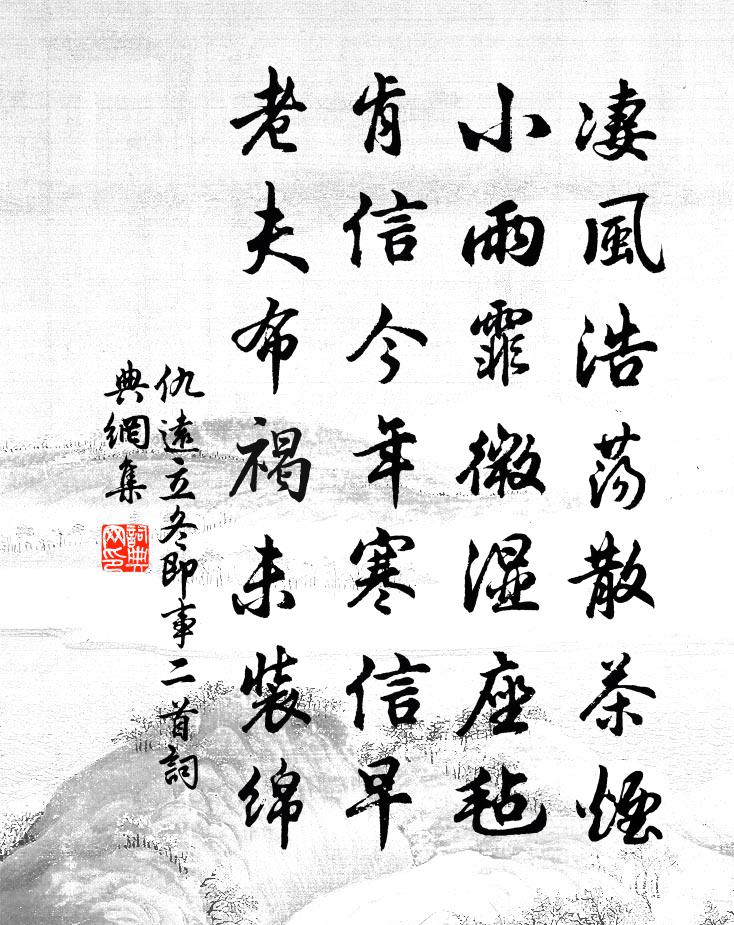 凄風浩荡散茶煙
小雨霏微湿座毡
肯信今年寒信早
老夫布褐未裝綿
仇遠立冬即事二首詞
典網集
詞典
网印